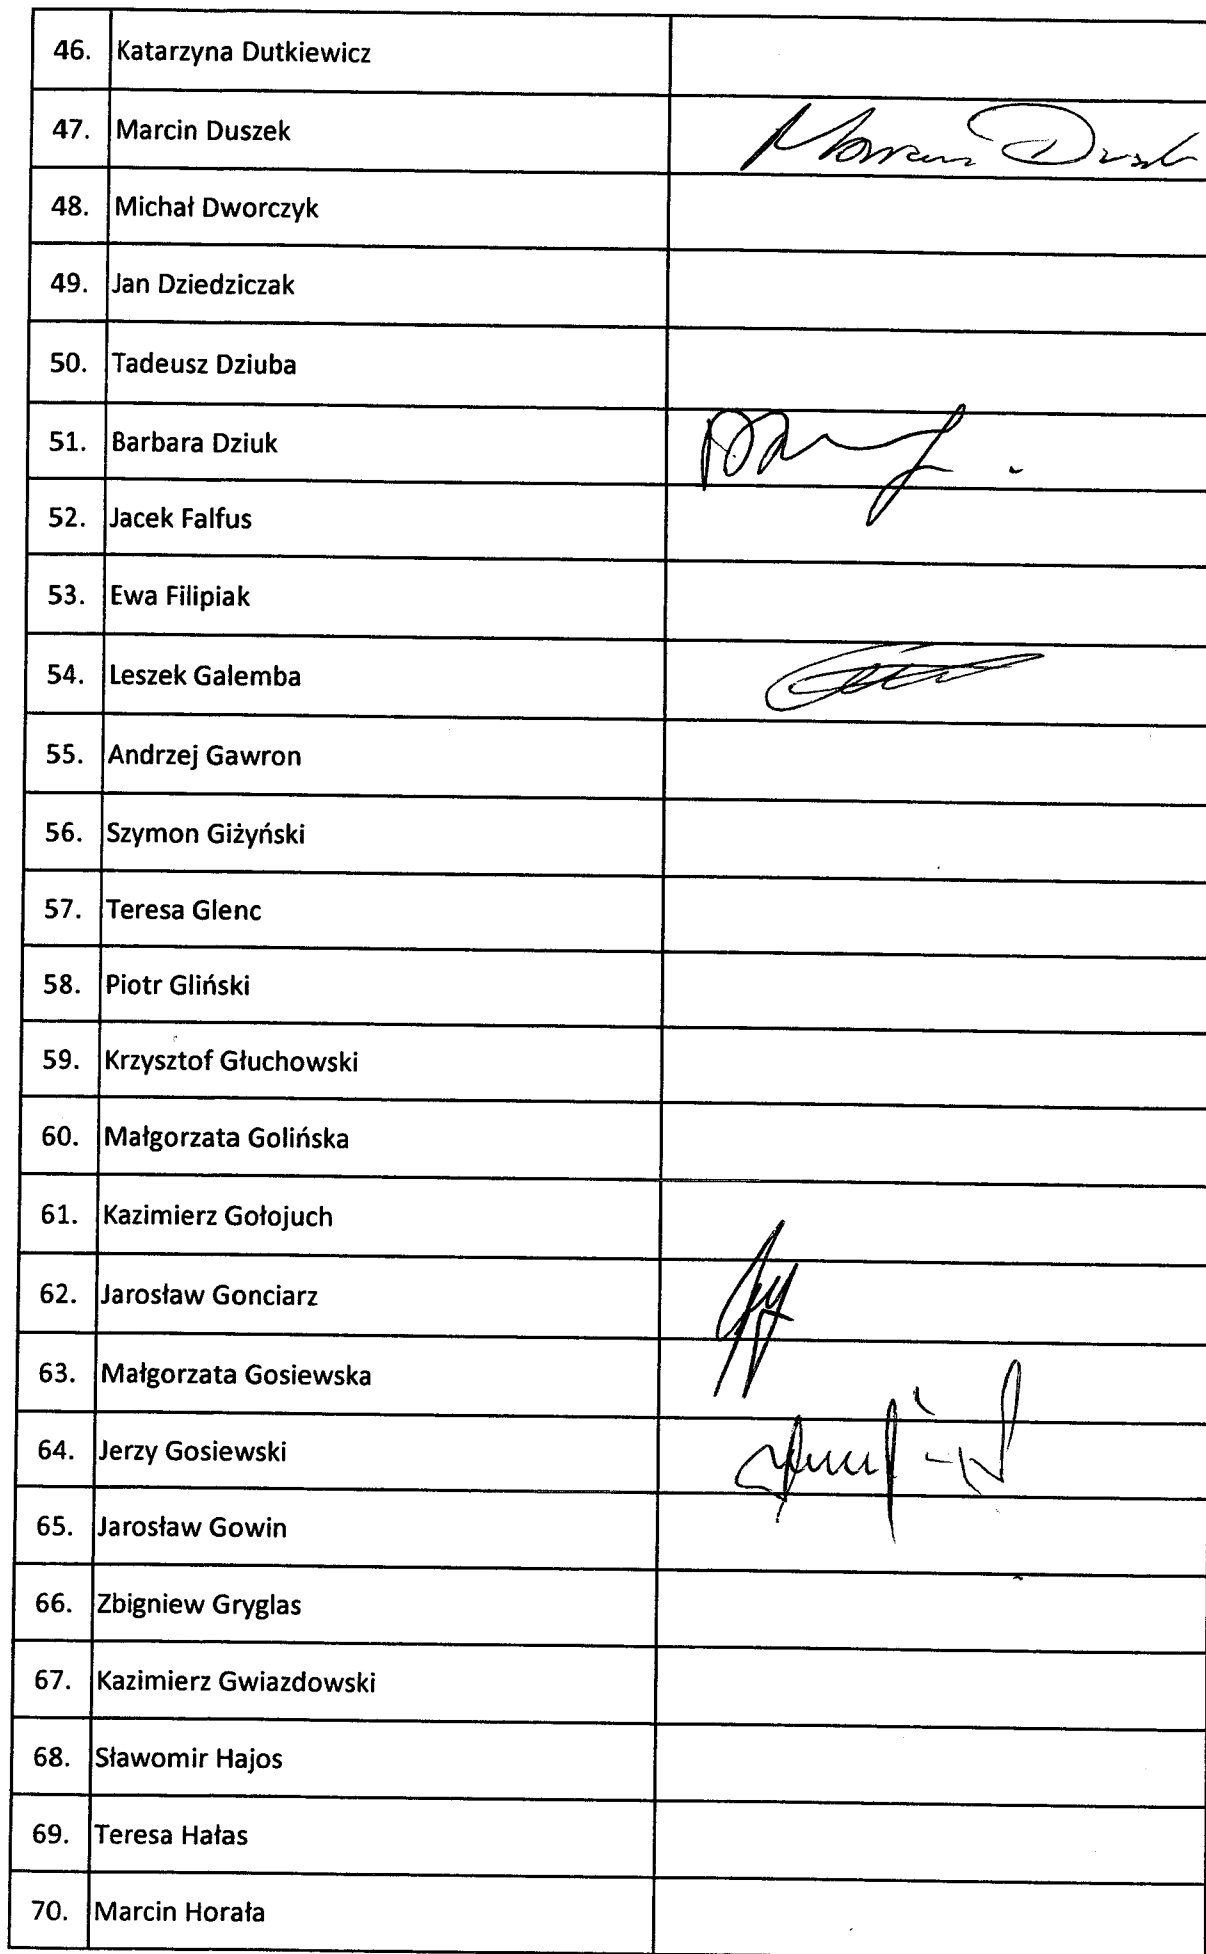 46. Katarzyna Dutkiewicz
47. Marcin Duszek
48. Michał Dworczyk
49. Jan Dziedziczak
50. Tadeusz Dziuba
51. Barbara Dziuk
52. Jacek Falfus
53. Ewa Filipiak
54. Leszek Galemba
55. Andrzej Gawron
56. Szymon Giżyński
57. Teresa Glenc
58. Piotr Gliński
59. Krzysztof Głuchowski
60. Małgorzata Golińska
61. Kazimierz Gołojuch
62. Jarosław Gonciarz
63. Małgorzata Gosiewska
64. Jerzy Gosiewski
65. Jarosław Gowin
66. Zbigniew Gryglas
67. Kazimierz Gwiazdowski
68. Sławomir Hajos
69. Teresa Hałas
70. Marcin Horała